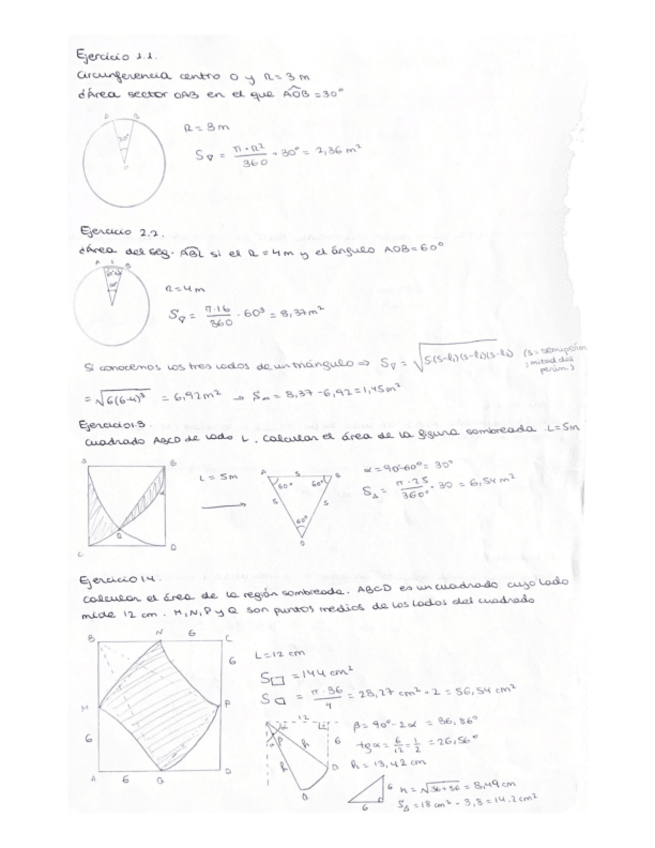 Ejercicio 1.1.
Circunferencia centro O y R = 3 m
¿Área sector OAB en el que AOB = 30°
A B
30°
O
R = 3 m
S▽ = π·R² / 360 · 30° = 2,36 m²
Ejercicio 2.2.
¿Área del seg. ABL si el R = 4m y el ángulo AOB = 60°
A B
R = 4m
S▽ = π·16 / 360 · 60° = 8,37 m²
Si conocemos los tres lados de un triángulo ⇒ S▽ = √S(S-l₁)(S-l₂)(S-l₃) (S = semiperím
; mitad del
perím.)
= √6(6-4)³ = 6,92 m² → S = 8,37 - 6,92 = 1,45 m²
Ejercicio 1.3
Cuadrado ABCD de lado L. Calcular el área de la figura sombreada. L = 5m
A B
C D
Q
L = 5m
A 5 B
60° 60°
5 5
60°
Q
α = 90° - 60° = 30°
S△ = π·25 / 360° · 30 = 6,54 m²
Ejercicio 1.4.
Calcular el área de la región sombreada. ABCD es un cuadrado cuyo lado
mide 12 cm. M, N, P y Q son puntos medios de los lados del cuadrado
B N 6 C
6
M P
6
A 6 Q D
L = 12 cm
S□ = 144 cm²
S = π·36 / 4 = 28,27 cm² · 2 = 56,54 cm²
12
6
β
h
h
β = 90° - 2α = 36,86°
tg α = 6/12 = 1/2 = 26,56°
h = 13,42 cm
6
6
h = √36+36 = 8,49 cm
S△ = 18 cm² - 3,8 = 14,2 cm²